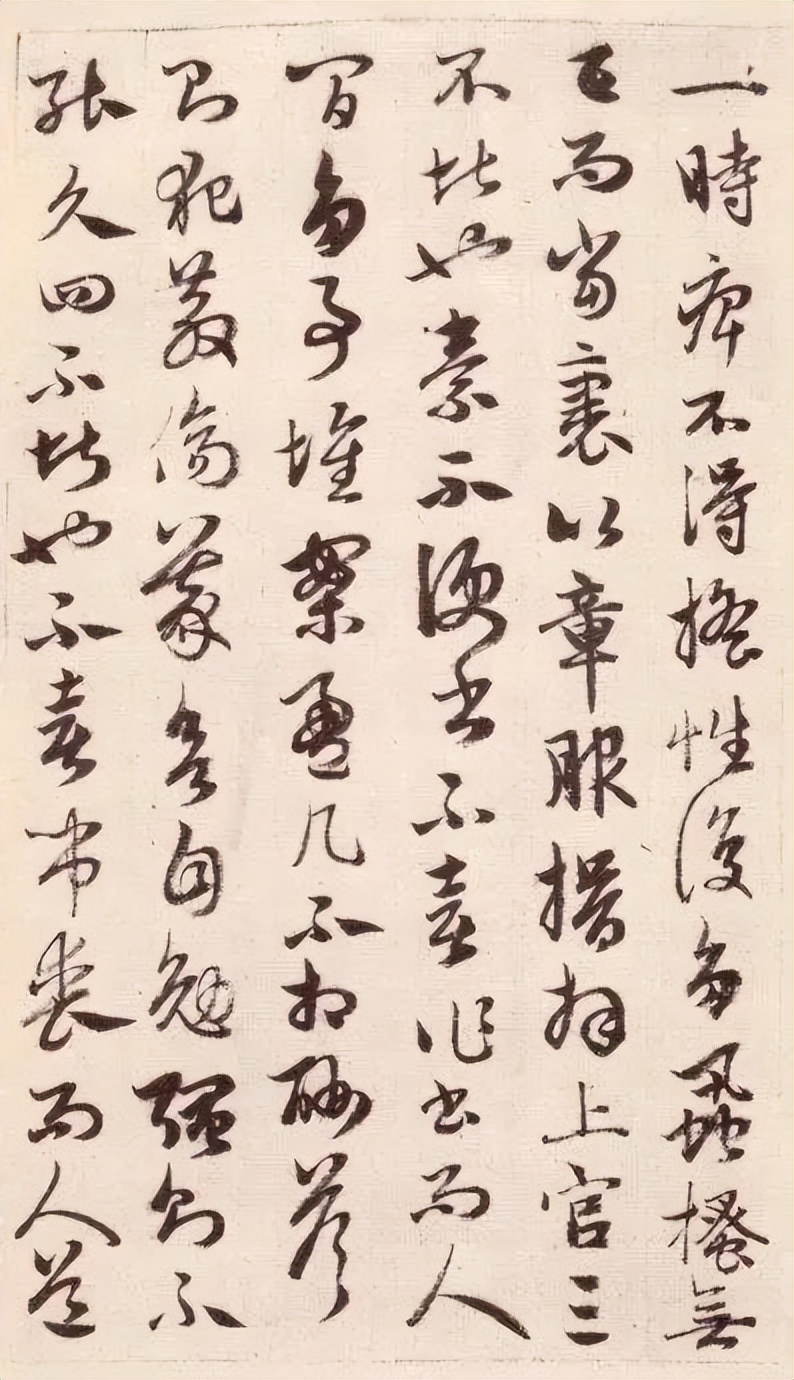 一時痹不得搖性復多蝨搔無
已而當裹以章服揖拜上官三
不堪也素不便書不喜作書而人
間多事堆案盈几不相酬答
則犯教傷義欲自勉強則不
能久四不堪也不喜弔喪而人道